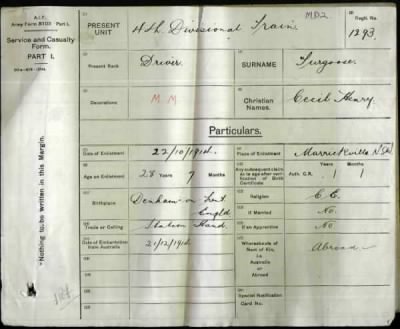 A.I.F.
Army Form B103 Part I.
Service and Casualty
Form.
PART I.
PRESENT
UNIT
4th Divisional Train
MD2
Regtl. No.
1293.
Present Rank
Driver
SURNAME
Decorations
M M
Christian
Names.
Cecil Henry
Particulars.
Date of Enlistment
22/10/1914
Place of Enlistment
Marrickville N.S.W.
Age on Enlistment
28 Years 7 Months
Any subsequent claim
as to age after verification
of Birth
Certificate
Auth. C.R.
Years
1
Months
1
Birthplace
Denham on
Engld
Religion
C.E.
If Married
No.
Trade or Calling
Station Hand
If an Apprentice
No.
Date of Embarkation
from Australia
21/12/1914
Whereabouts of
Next of Kin,
i.e.
Australia
or
Abroad
Abroad
Special Notification
Card
*Nothing to be written in this Margin.